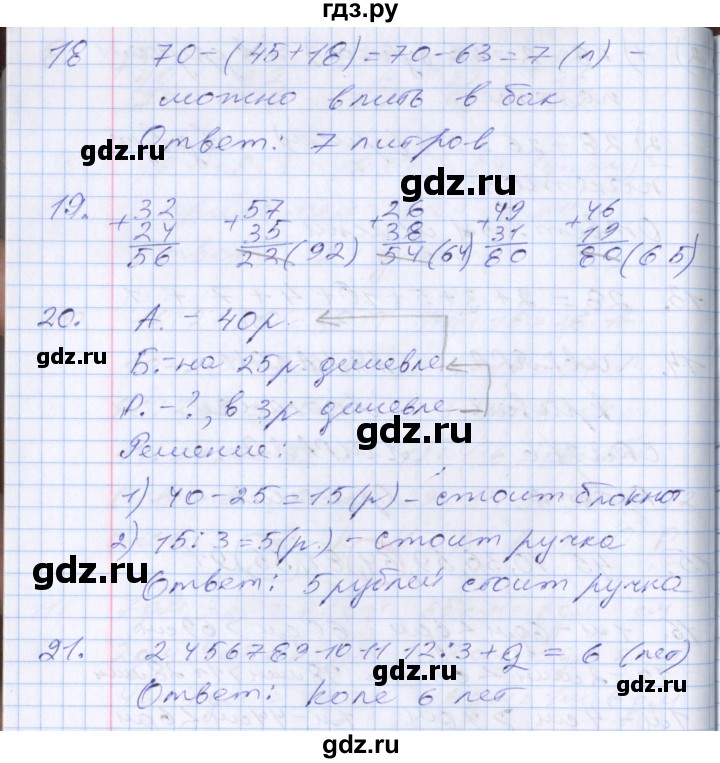 гдз.ру
18 70-(45+18)=70-63=7(л) -
можно влить в бак
Ответ: 7 литров
gdz.ru
gdz.ru
19. +32 +57 +26 +49 +46
24 35 38 31 19
56 22(92) 54(64) 80 80(65)
gdz.ru
20. А. - 40р.
gdz.ru
Б. - на 25р. дешевле
Р. - ?, в 3р дешевле
gdz.ru
Решение:
1) 40-25=15(р) - стоит блокнот
2) 15:3=5(р.) - стоит ручка
gdz.ru
gdz.ru
Ответ: 5 рублей стоит ручка
21. 2 4 5 6 7 8 9 10 11 12:3+2 = 6 (лет)
gdz.ru
gdz.ru
Ответ: Коле 6 лет
gdz.ru
gdz.ru